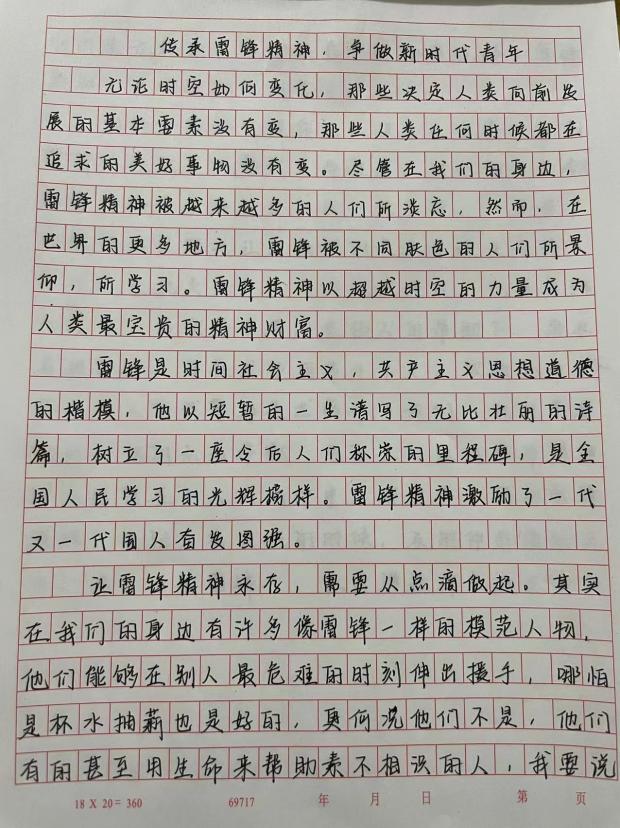 传承雷锋精神，争做新时代青年
无论时空如何变化，那些决定人类向前发
展的基本要素没有变，那些人类任何时候都在
追求的美好事物没有变。尽管在我们的身边，
雷锋精神被越来越多的人们所淡忘，然而，在
世界的更多地方，雷锋被不同肤色的人们所景
仰，所学习。雷锋精神以超越时空的力量成为
人类最宝贵的精神财富。
雷锋是时间社会主义，共产主义思想道德
的楷模，他以短暂的一生谱写了无比壮丽的诗
篇，树立了一座令后人们称崇的里程碑，是全
国人民学习的光辉榜样。雷锋精神激励了一代
又一代国人奋发图强。
让雷锋精神永存，需要从点滴做起。其实
在我们的身边有许多像雷锋一样的模范人物，
他们能够在别人最危难的时刻伸出援手，哪怕
是杯水抽薪也是好的，更何况他们不是，他们
有的甚至用生命来帮助素不相识的人，我要说
18 X 20 = 360 69717 年 月 日 第 页